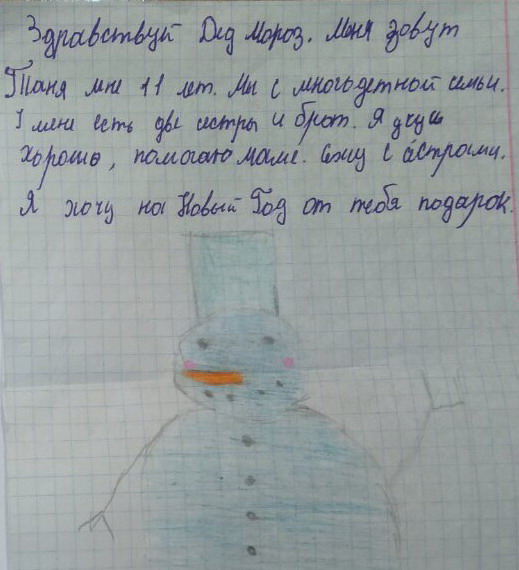 Здравствуй Дед Мороз. Меня зовут
Таня мне 11 лет. Мы с многодетной семьи.
У меня есть две сестры и брат. Я учусь
хорошо, помогаю маме. Сижу с сёстрами.
Я хочу на Новый Год от тебя подарок.